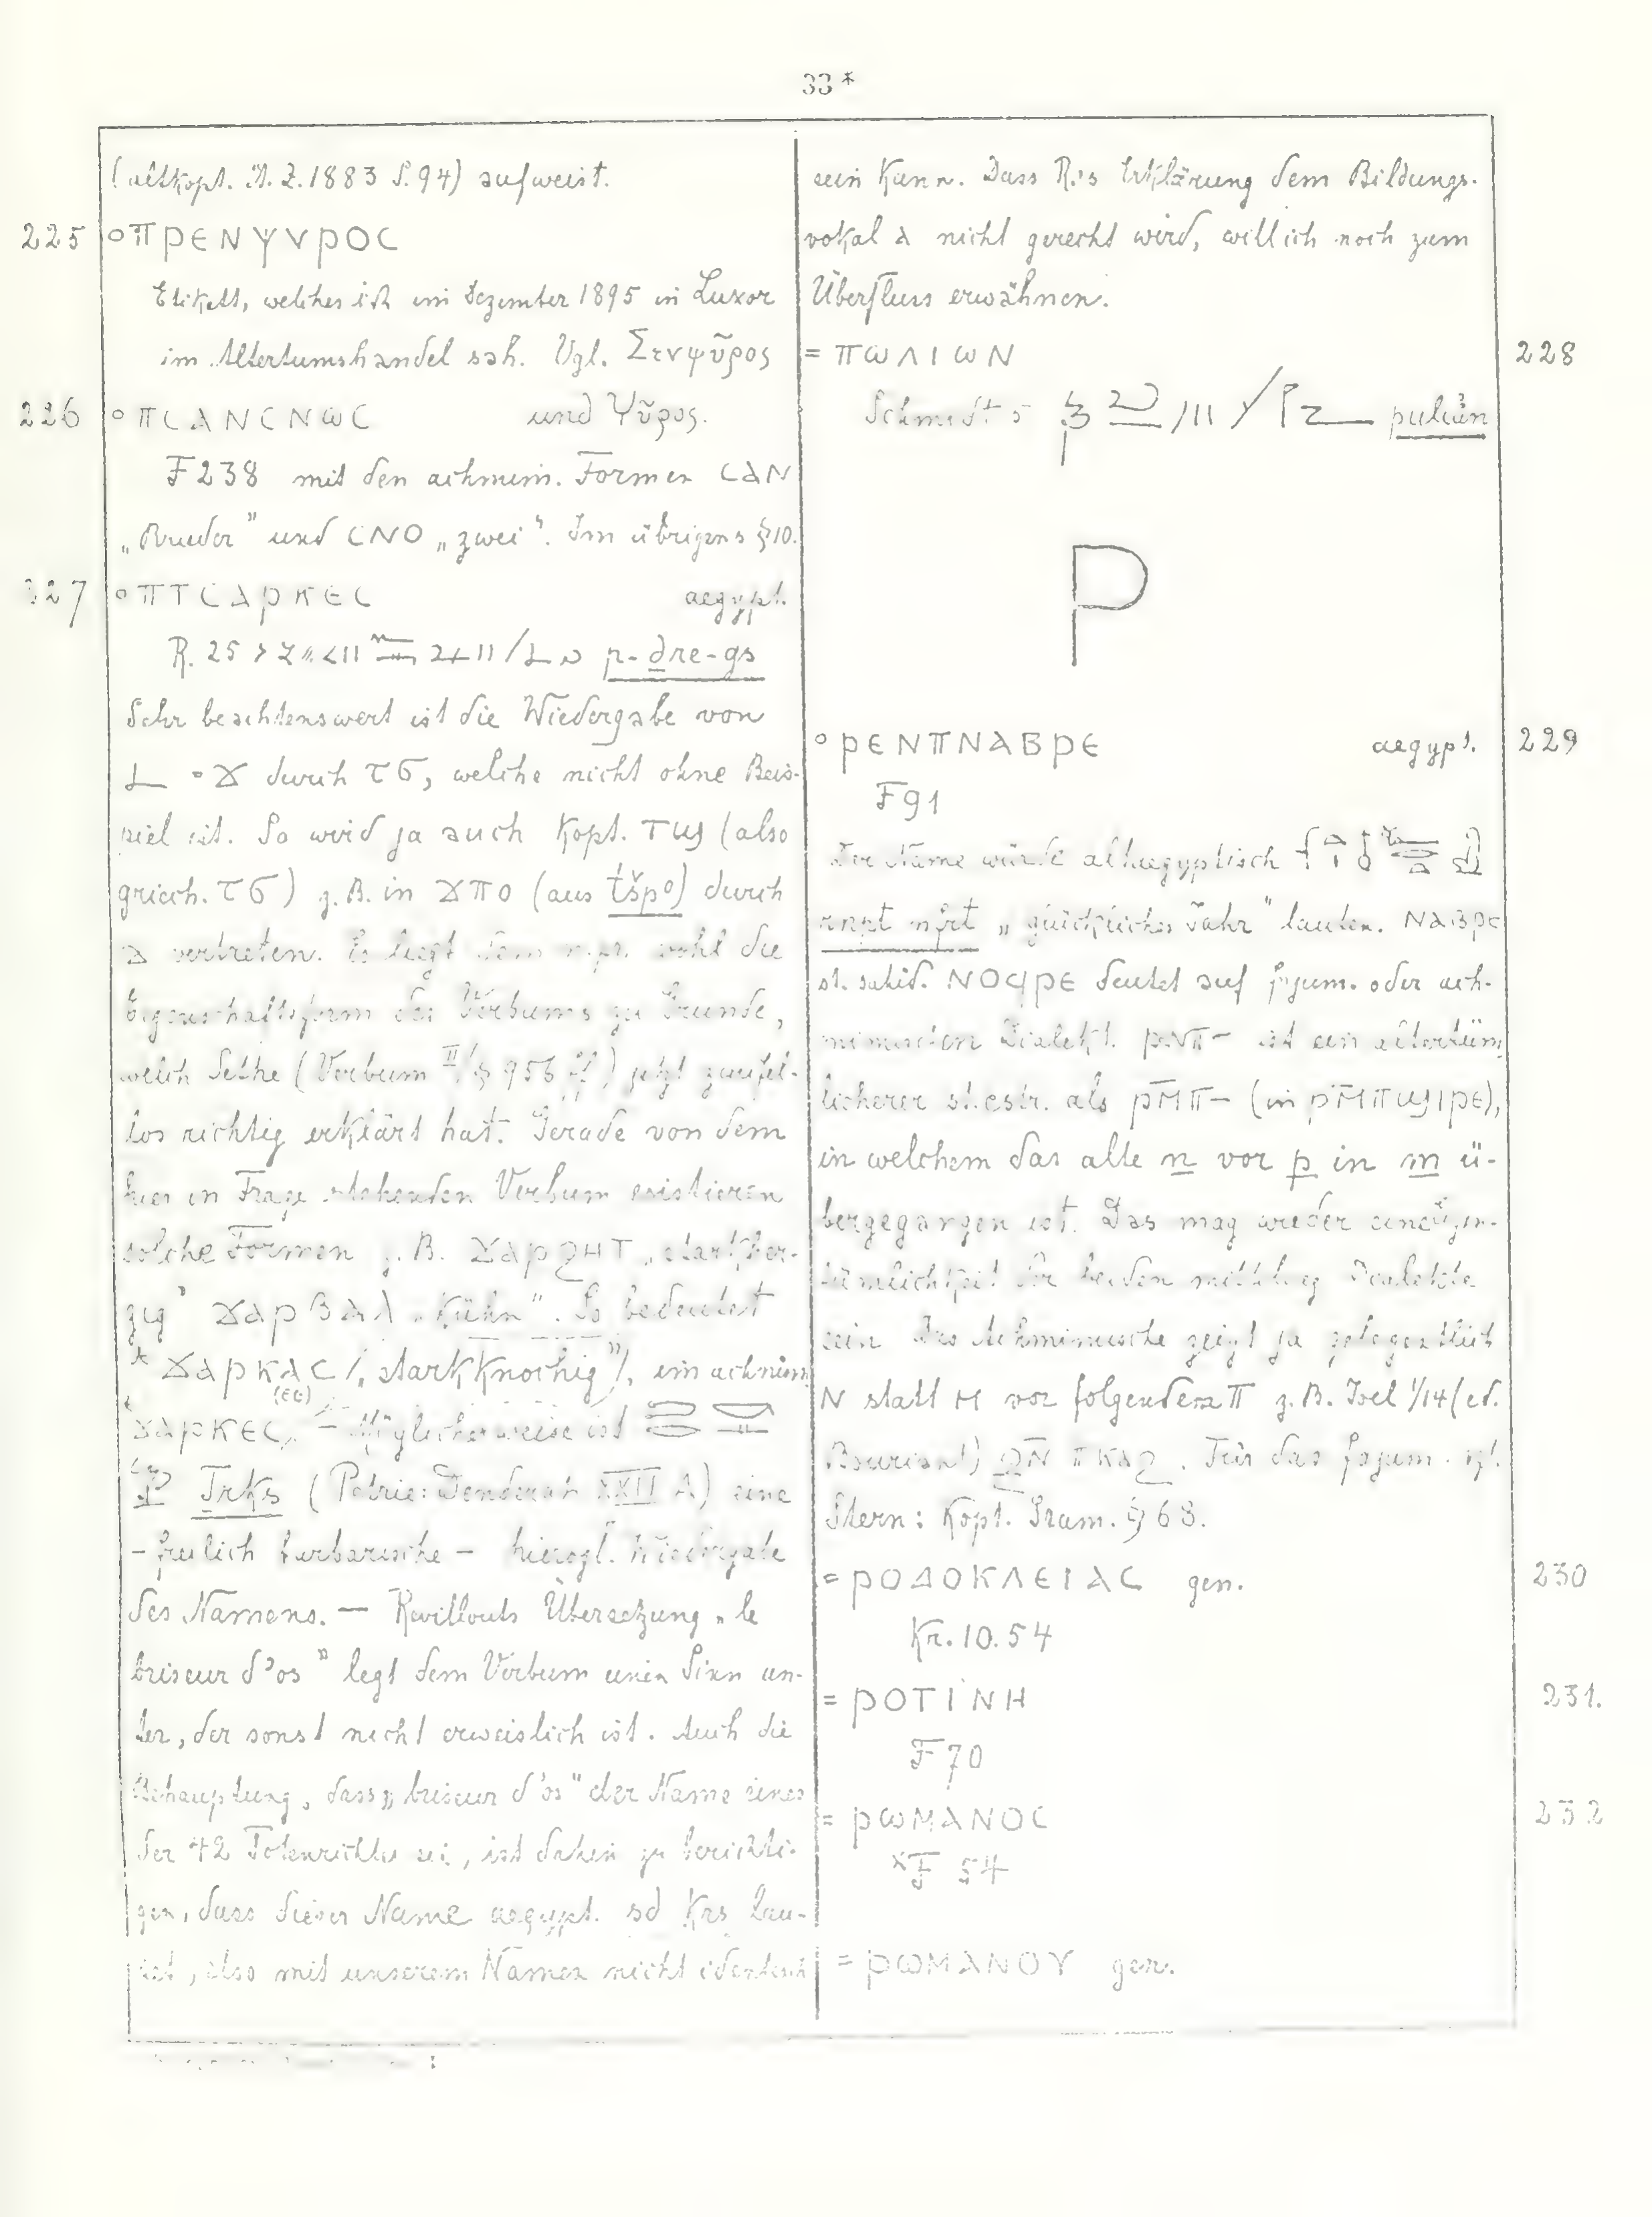 33*
(altkopt. Ä.Z. 1883 S. 94) aufweist.
225 °ΠΡΕΝΨΥΡΟΣ
Etikett, welches ich im Dezember 1895 in Luxor
im Altertumshandel sah. Vgl. Σενψῦρος
und Ψῦρος.
226 °ΠⲤⲀΝⲤΝⲰⲤ
F 238 mit den achmim. Formen ⲤⲀⲚ
„Bruder" und ⲤⲚⲞ „zwei". Im übrigen s. § 10.
227 °ΠΤⲤⲀΡΚΕⲤ aegypt.
R. 25 p-dre-gs
Sehr beachtenswert ist die Wiedergabe von
= ϫ durch τσ, welche nicht ohne Beis-
piel ist. So wird ja auch kopt. ⲧϣ (also
griech. τσ) z. B. in ϫⲡⲟ (aus tšpo) durch
ϫ vertreten. Es liegt dem n. pr. wohl die
Eigenschaftsform des Verbums zu Grunde,
welch Sethe (Verbum II, § 956 ff) jetzt zweifel-
los richtig erklärt hat. Gerade von dem
hier in Frage stehenden Verbum existieren
solche Formen z. B. ϫⲁⲣϩⲏⲧ „starkher-
zig" ϫⲁⲣⲃⲁⲗ „kühn". So bedeutet
* ϫⲁⲣⲕⲁⲥ („starkknochig"), im achmim.
* ϫⲁⲣⲕⲉⲥ (ⲉⲉ). – Möglicherweise ist
Trks (Petrie: Denderah XXII A) eine
– freilich barbarische – hierogl. Wiedergabe
des Namens. — Revillouts Übersetzung „le
briseur d'os" legt dem Verbum einen Sinn un-
ter, der sonst nicht erweislich ist. Auch die
Behauptung, dass „briseur d'os" der Name eines
der 42 Totenrichter sei, ist dahin zu berichti-
gen, dass dieser Name aegypt. sd krs lau-
tet, also mit unserem Namen nicht identisch
sein kann. Dass R.'s Erklärung dem Bildungs-
vokal ⲁ nicht gerecht wird, will ich noch zum
Überfluss erwähnen.
= ΠⲰΛΙⲰΝ 228
Schmidt 5 puliän
P
°ΡΕΝΠΝΑΒΡΕ aegypt. 229
F 91
Der Name würde altaegyptisch
rnpt nfrt „glückliches Jahr" lauten. ΝΑΒΡΕ
st. sahid. ⲚⲞϤⲢⲈ deutet auf fajum. oder ach-
mimischen Dialekt. ⲣⲛⲡ- ist ein altertüm-
licherer st. cstr. als ⲣⲙ̄ⲡ- (in ⲣⲙ̄ⲡϣⲓⲣⲉ),
in welchem das alte n vor p in m ü-
bergegangen ist. Das mag wieder eine Eigen-
tümlichkeit der beiden mittelaeg. Dialekte
sein. Das Achmimische zeigt ja gelegentlich
Ⲛ statt Ⲙ vor folgendem Π z. B. Joel 1/14 (ed.
Bouriant) ϩⲛ̄ ⲡⲕⲁϩ. Für das fajum. vgl.
Stern: Kopt. Gram. § 68.
= ΡΟΔΟΚΛΕΙΑⲤ gen. 230
Kr. 10. 54
= ΡΟΤΙΝΗ 231.
F 70
= ΡⲰΜΑΝΟⲤ 232
×F 54
= ΡⲰΜΑΝΟΥ gen.